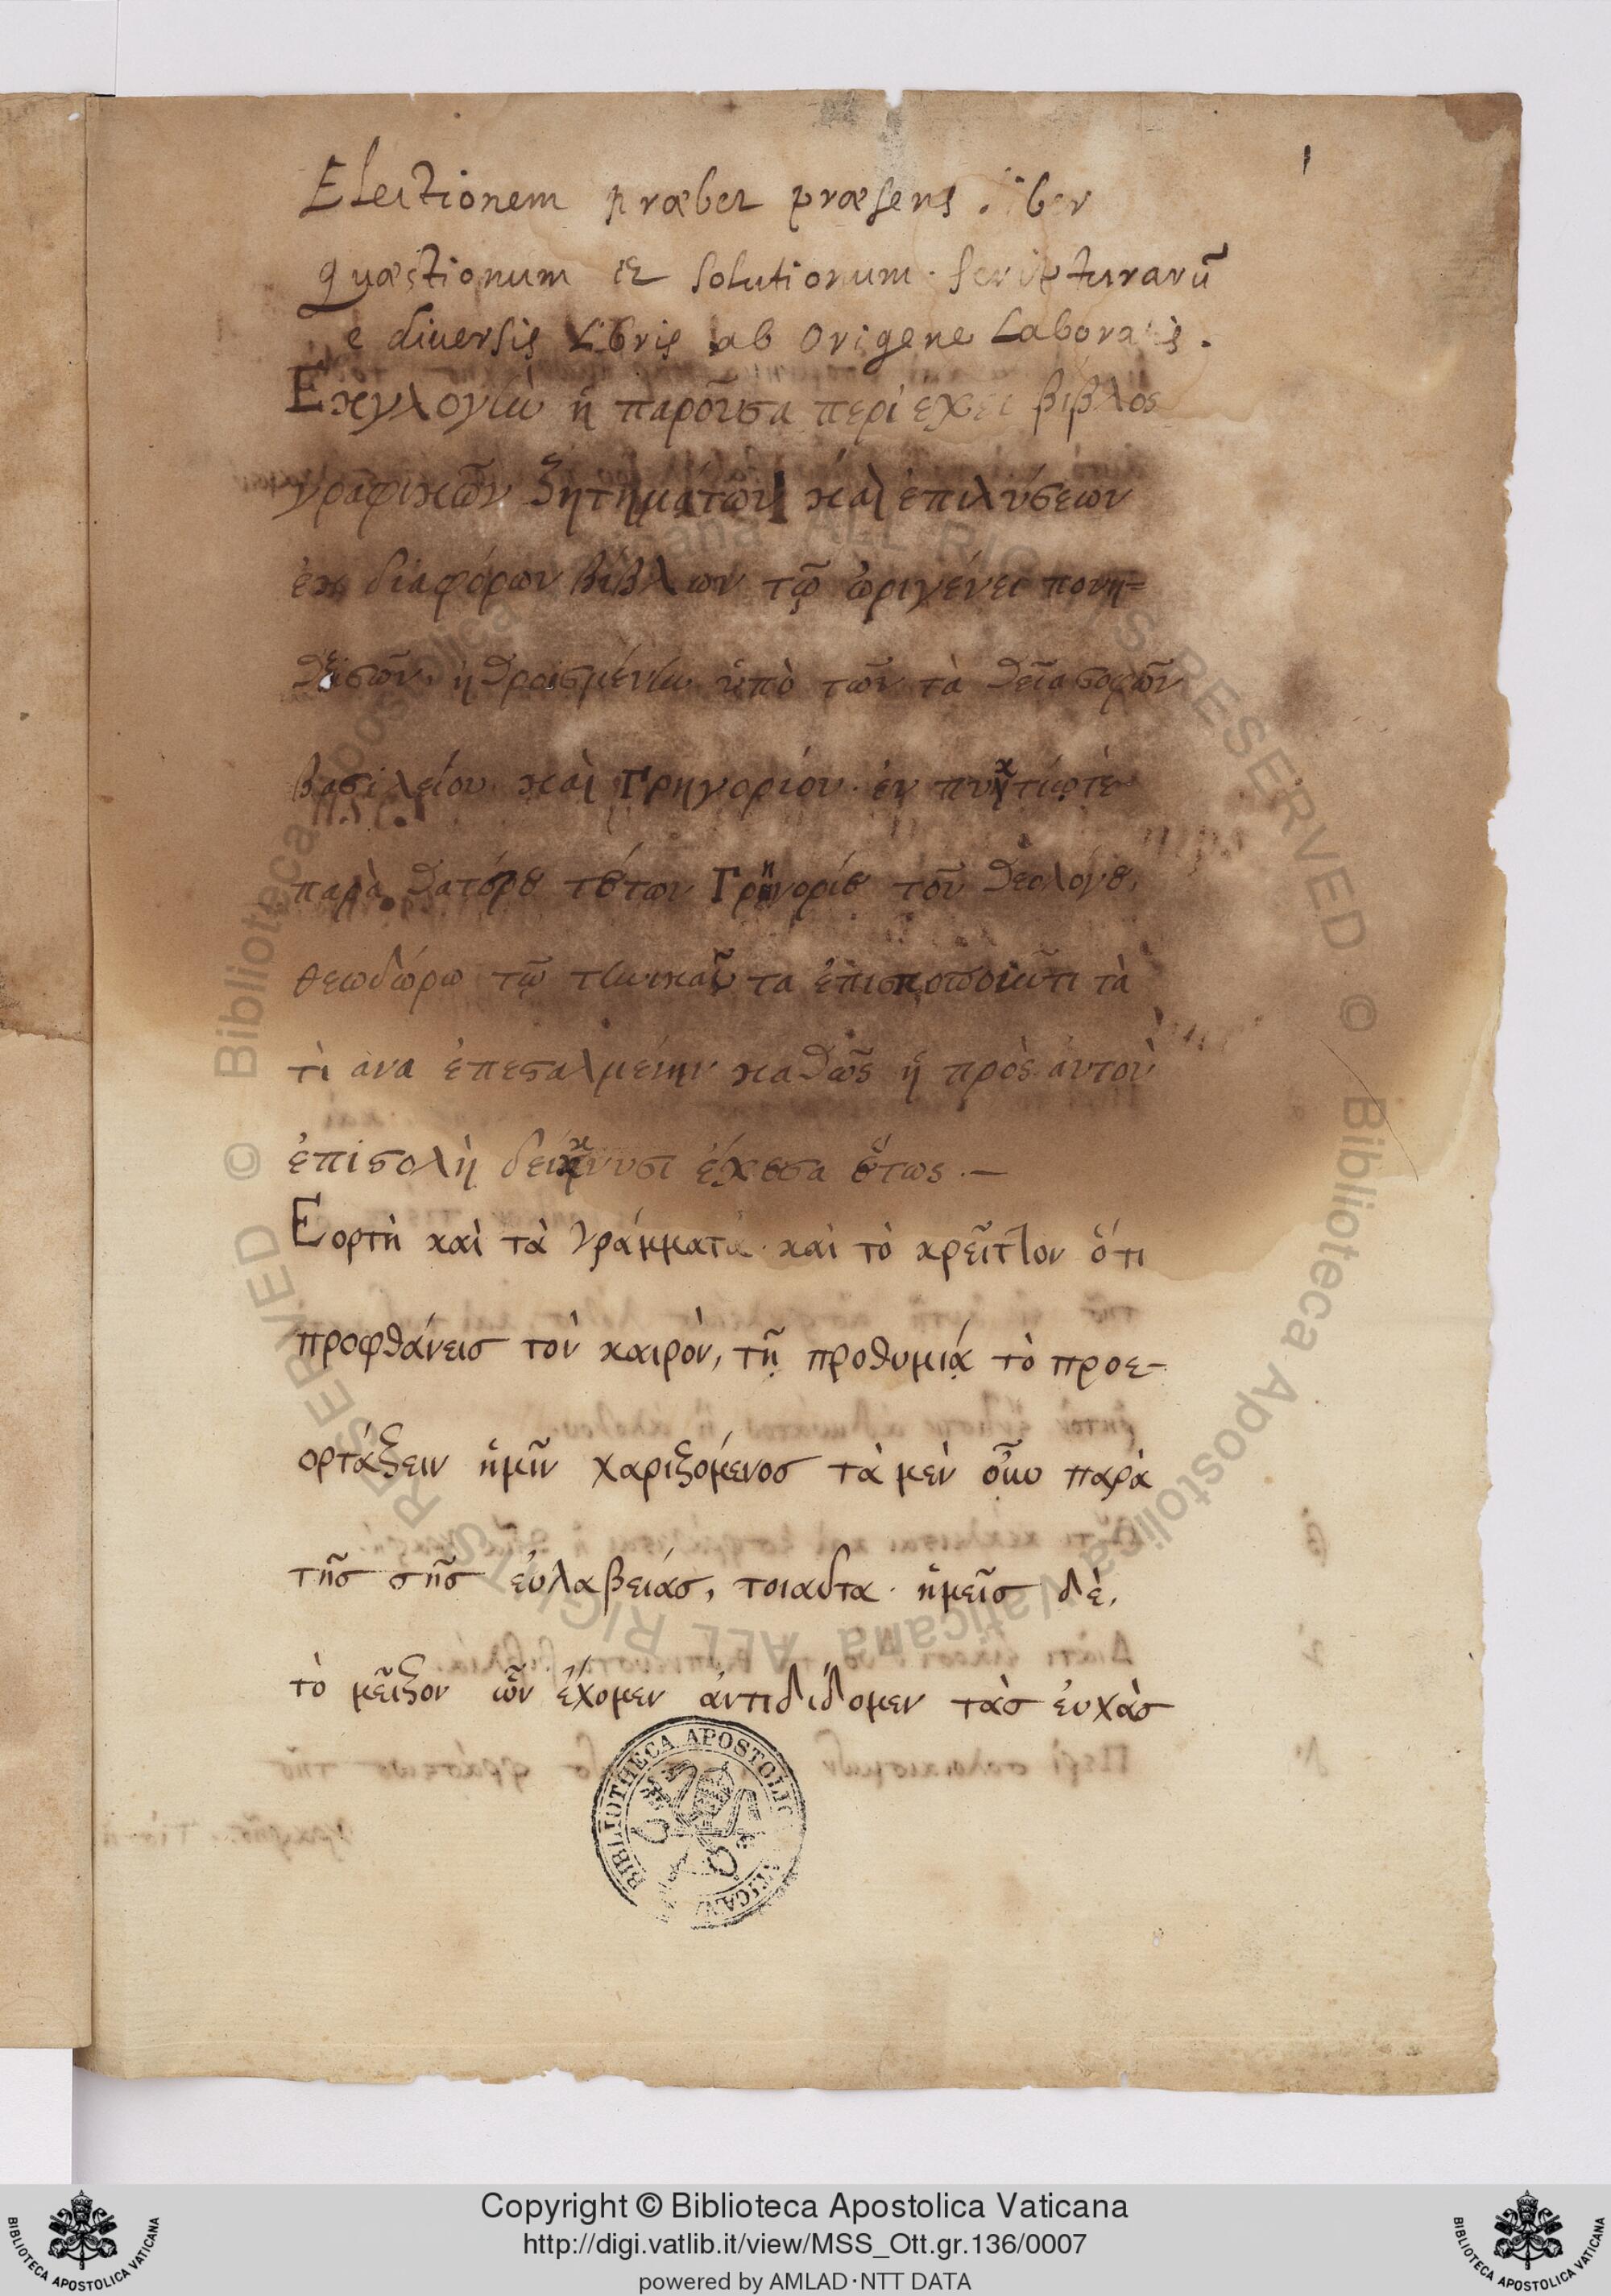 1
Electionem præbet præsens liber
Quæstionum et solutionum scripturarū
e diversis Libris ab Origene Laboratis.
Ἐκγλογὴν ἡ παροῦσα περιέχει βίβλος
γραφικῶν ζητημάτων καὶ ἐπιλύσεων
ἐκ διαφόρων βίβλων τῷ ὠριγένει πονη-
θεισῶν. ἠθροισμένην ὑπὸ τῶν τὰ θεῖα σοφῶν
βασιλείου καὶ Γρηγορίου. ἐν πυκτίῳ τὲ
παρὰ θατέρου τούτων Γρηγορίου τοῦ θεολόγου.
θεωδώρω τῶ τηνικαῦτα ἐπισκοποῦντι τὰ
τίανα ἐπεσταλμένην καθὼς ἡ πρὸς ἀυτὸν
ἐπιστολὴ δείκνυσι ἔχουσα οὕτως .—
Εορτὴ καὶ τὰ γράμματα· καὶ τὸ κρεῖττον ὅτι
προφθάνεισ τὸν καιρὸν, τῆ προθυμιά τὸ προε-
ορτάζειν ἡμῖν χαριζόμενοσ τὰ μὲν οὖν παρὰ
τῆσ σῆσ ἐυλαβειάσ, τοιαῦτα· ἡμεῖσ δὲ,
τὸ μεῖζον ὧν ἔχομεν ἀντιδίδομεν τὰσ ἐυχὰσ
BIBLIOTHECA APOSTOLICA VATICANA
© Biblioteca Apostolica Vaticana ALL RIGHTS RESERVED © Biblioteca Apostolica Vaticana ALL RIGHTS RESERVED
Copyright © Biblioteca Apostolica Vaticana
http://digi.vatlib.it/view/MSS_Ott.gr.136/0007
powered by AMLAD·NTT DATA
BIBLIOTECA APOSTOLICA VATICANA
BIBLIOTECA APOSTOLICA VATICANA